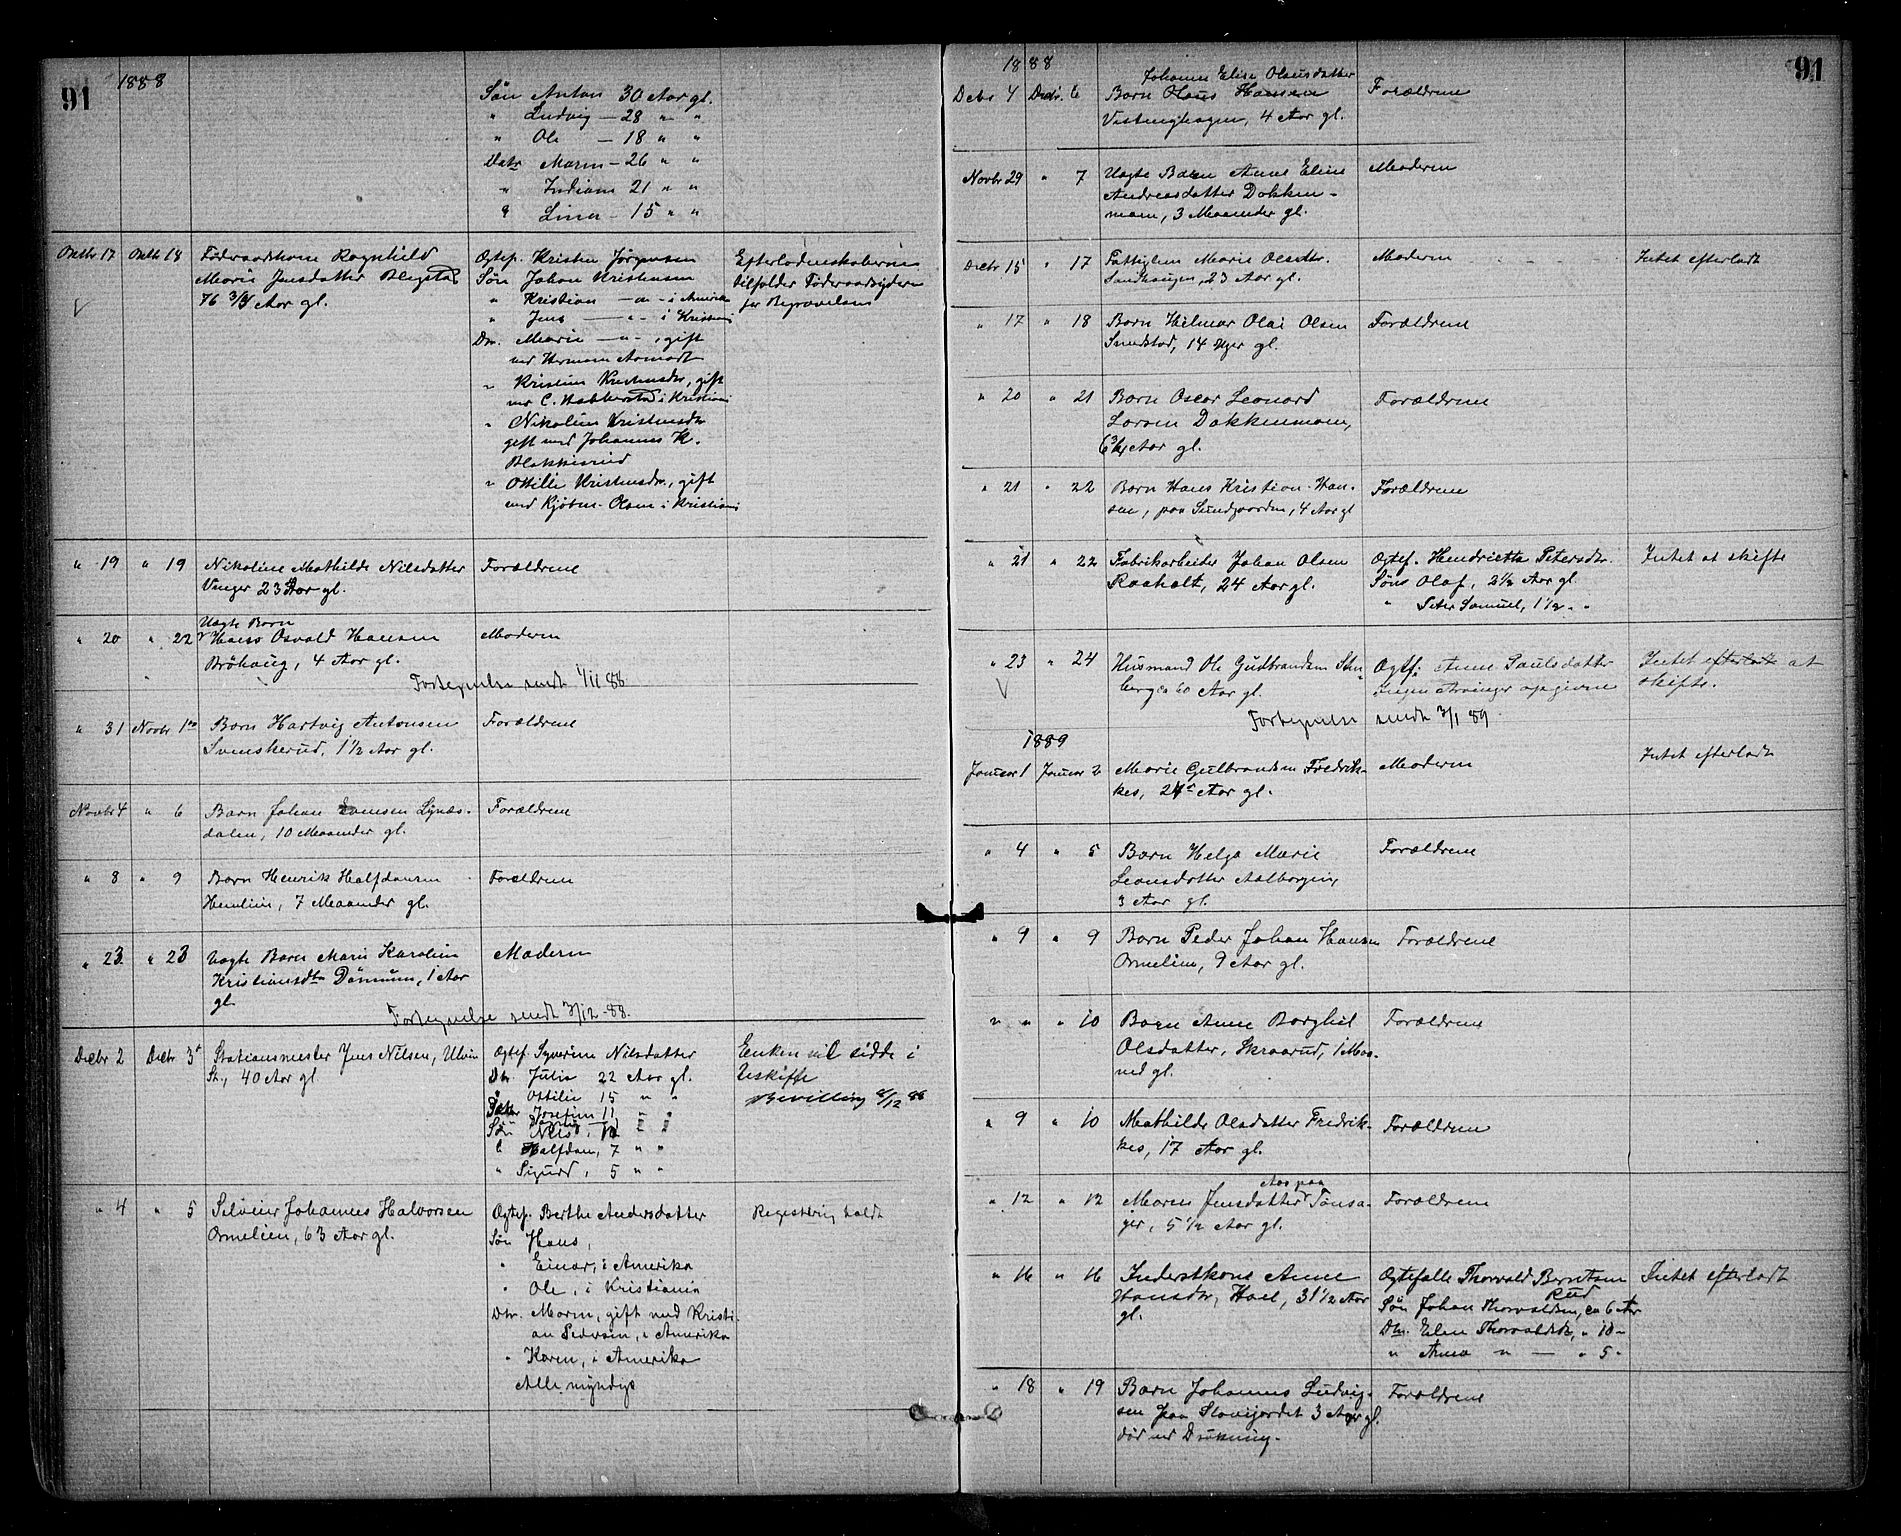 91 1888
Søn Anton 30 Aar gl.
" Ludvig — 28 " "
" Ole — 18 " "
Datr Maren — 26 " "
" Indiane 21 " "
" Lina — 15 " "
Oktbr 17 Oktbr 18 Føderaadskone Ragnhild
Marie Jensdatter Blegstad
76 3/4 Aar gl.
Ogtef. Kristen Jørgensen
Søn Johan Kristensen
" Kristian — " — i Amerika
" Jens — " — i Kristiania
Dtr. Marie — " — , gift
med Herman Aamodt
" Kristine Kristensdtr, gift
med C. i Kristiania
" Nikoline Kristensdtr
gift med Johannes K.
Blakkisrud
" Ottilie Kristensdtr., gift
med Kjøbm. Olsen i Kristiania
Efterladenskaberne
tilfalder Føderaadsyderen
for Begravelsen
" 19 " 19 Nikoline Mathilde Nilsdatter
Unger 23 Aar gl.
Forældrene
" 20 " 22 Uægte Barn
Hans Osvald Hansen
Brøhaug, 4 Aar gl.
Moderen
Fortegnelse sendt 1/11 88
" 31 Novbr 1ste Barn Hartvig Antonsen
Svenskerud, 1 1/2 Aar gl.
Forældrene
Novbr 4 " 6 Barn Johan Lynæs-
dalen, 10 Maaneder gl.
Forældrene
" 8 " 9 Barn Henrik Halfdansen
Hemlien, 7 Maaneder gl.
Forældrene
" 23 " 23 Uægte Barn Maria Karoline
Kristiansdtr Dønnum, 1 Aar
gl.
Moderen
Fortegnelse sendt 3/12 88.
Decbr 2 Decbr 3 Stationsmester Jens Nilsen, Ulvin
St., 40 Aar gl.
Ogtef. Syverine Nilsdatter
Dtr. Julie 22 Aar gl.
" Ottilie 15 " "
Datter Josefine 11 " "
Søn Nils,
" Halfdan, 7 " "
" Sigurd, 5 " "
Enken vil sidde i
Uskifte
Bevilling 8/12 88
" 4 " 5 Selveier Johannes Halvorsen
Ormelien, 63 Aar gl.
Ogtef. Berthe Andersdatter
Søn Hans,
" Einar, i Amerika
" Ole, i Kristiania
Dtr. Maren, gift med Kristi-
an Pedersen, i Amerika
" Karen, i Amerika
Alle myndige
Registrering holdt
1888 91
Decbr 4 Decbr. 6 Johanne Elise Olausdatter
Barn Olaus Hansen
Vestenghagen, 4 Aar gl.
Forældrene
Novbr 29 " 7 Uægte Barn Anne Eline
Andreasdatter Dokken-
moen, 3 Maaneder gl.
Moderen
Decbr 15 " 17 Fattiglem Marie Olsdtr.
Sandhaugen, 23 Aar gl.
Moderen
Intet efterladt
" 17 " 18 Barn Hilmar Olai Olsen
Sundstad, 14 Uger gl.
Forældrene
" 20 " 21 Barn Oscar Leonard
Larsen Dokkenmoen,
6 3/4 Aar gl.
Forældrene
" 21 " 22 Barn Hans Kristian Han-
sen, paa Sundgaarden, 4 Aar gl
Forældrene
" 21 " 22 Fabrikarbeider Johan Olsen
Raaholt, 24 Aar gl.
Ogtef. Hendriette Petersdtr.
Søn Olaf, 2 1/2 Aar gl.
" Peter Samuel, 1 1/2 " "
Intet at skifte
" 23 " 24 Husmand Ole Gudbrandsen Sten-
berg ca 60 Aar gl.
Ogtf. Anne Paulsdatter
Ingen Arvinger opgivne
Intet efterladt at
skifte.
Fortegnelse sendt 3/1 89
1889
Januar 1 Januar 2 Marie Gulbrandsen Fredrik-
kes, 24 Aar gl.
Moderen
Intet efterladt
" 4 " 5 Barn Helga Marie
Leonsdatter Aalborgen,
3 Aar gl.
Forældrene
" 9 " 9 Barn Peder Johan Hansen
Ormelien, 9 Aar gl.
Forældrene
" " " 10 Barn Anne Borghil
Olsdatter, Skraarud, 1 Maa-
ned gl.
Forældrene
" 9 " 10 Mathilde Olsdatter Fredrik-
kes, 17 Aar gl.
Forældrene
" 12 " 12 Maren Jensdatter Aas paa Tønsa-
ger, 5 1/2 Aar gl.
Forældrene
" 16 " 16 Inderstkone Anne
Hansdtr, Hoel, 31 1/2 Aar
gl.
Ogtefælle Thorvald Berntsen
Rud
Søn Johan Thorvaldsen, ca 6 Aar
Dtr. Elen Thorvaldsdtr, " 10 "
" Anna " — " 5 "
Intet efterladt
" 18 " 19 Barn Johannes Ludvig-
sen paa Slavijordet 3 Aar gl.
død ved Drukning.
Forældrene